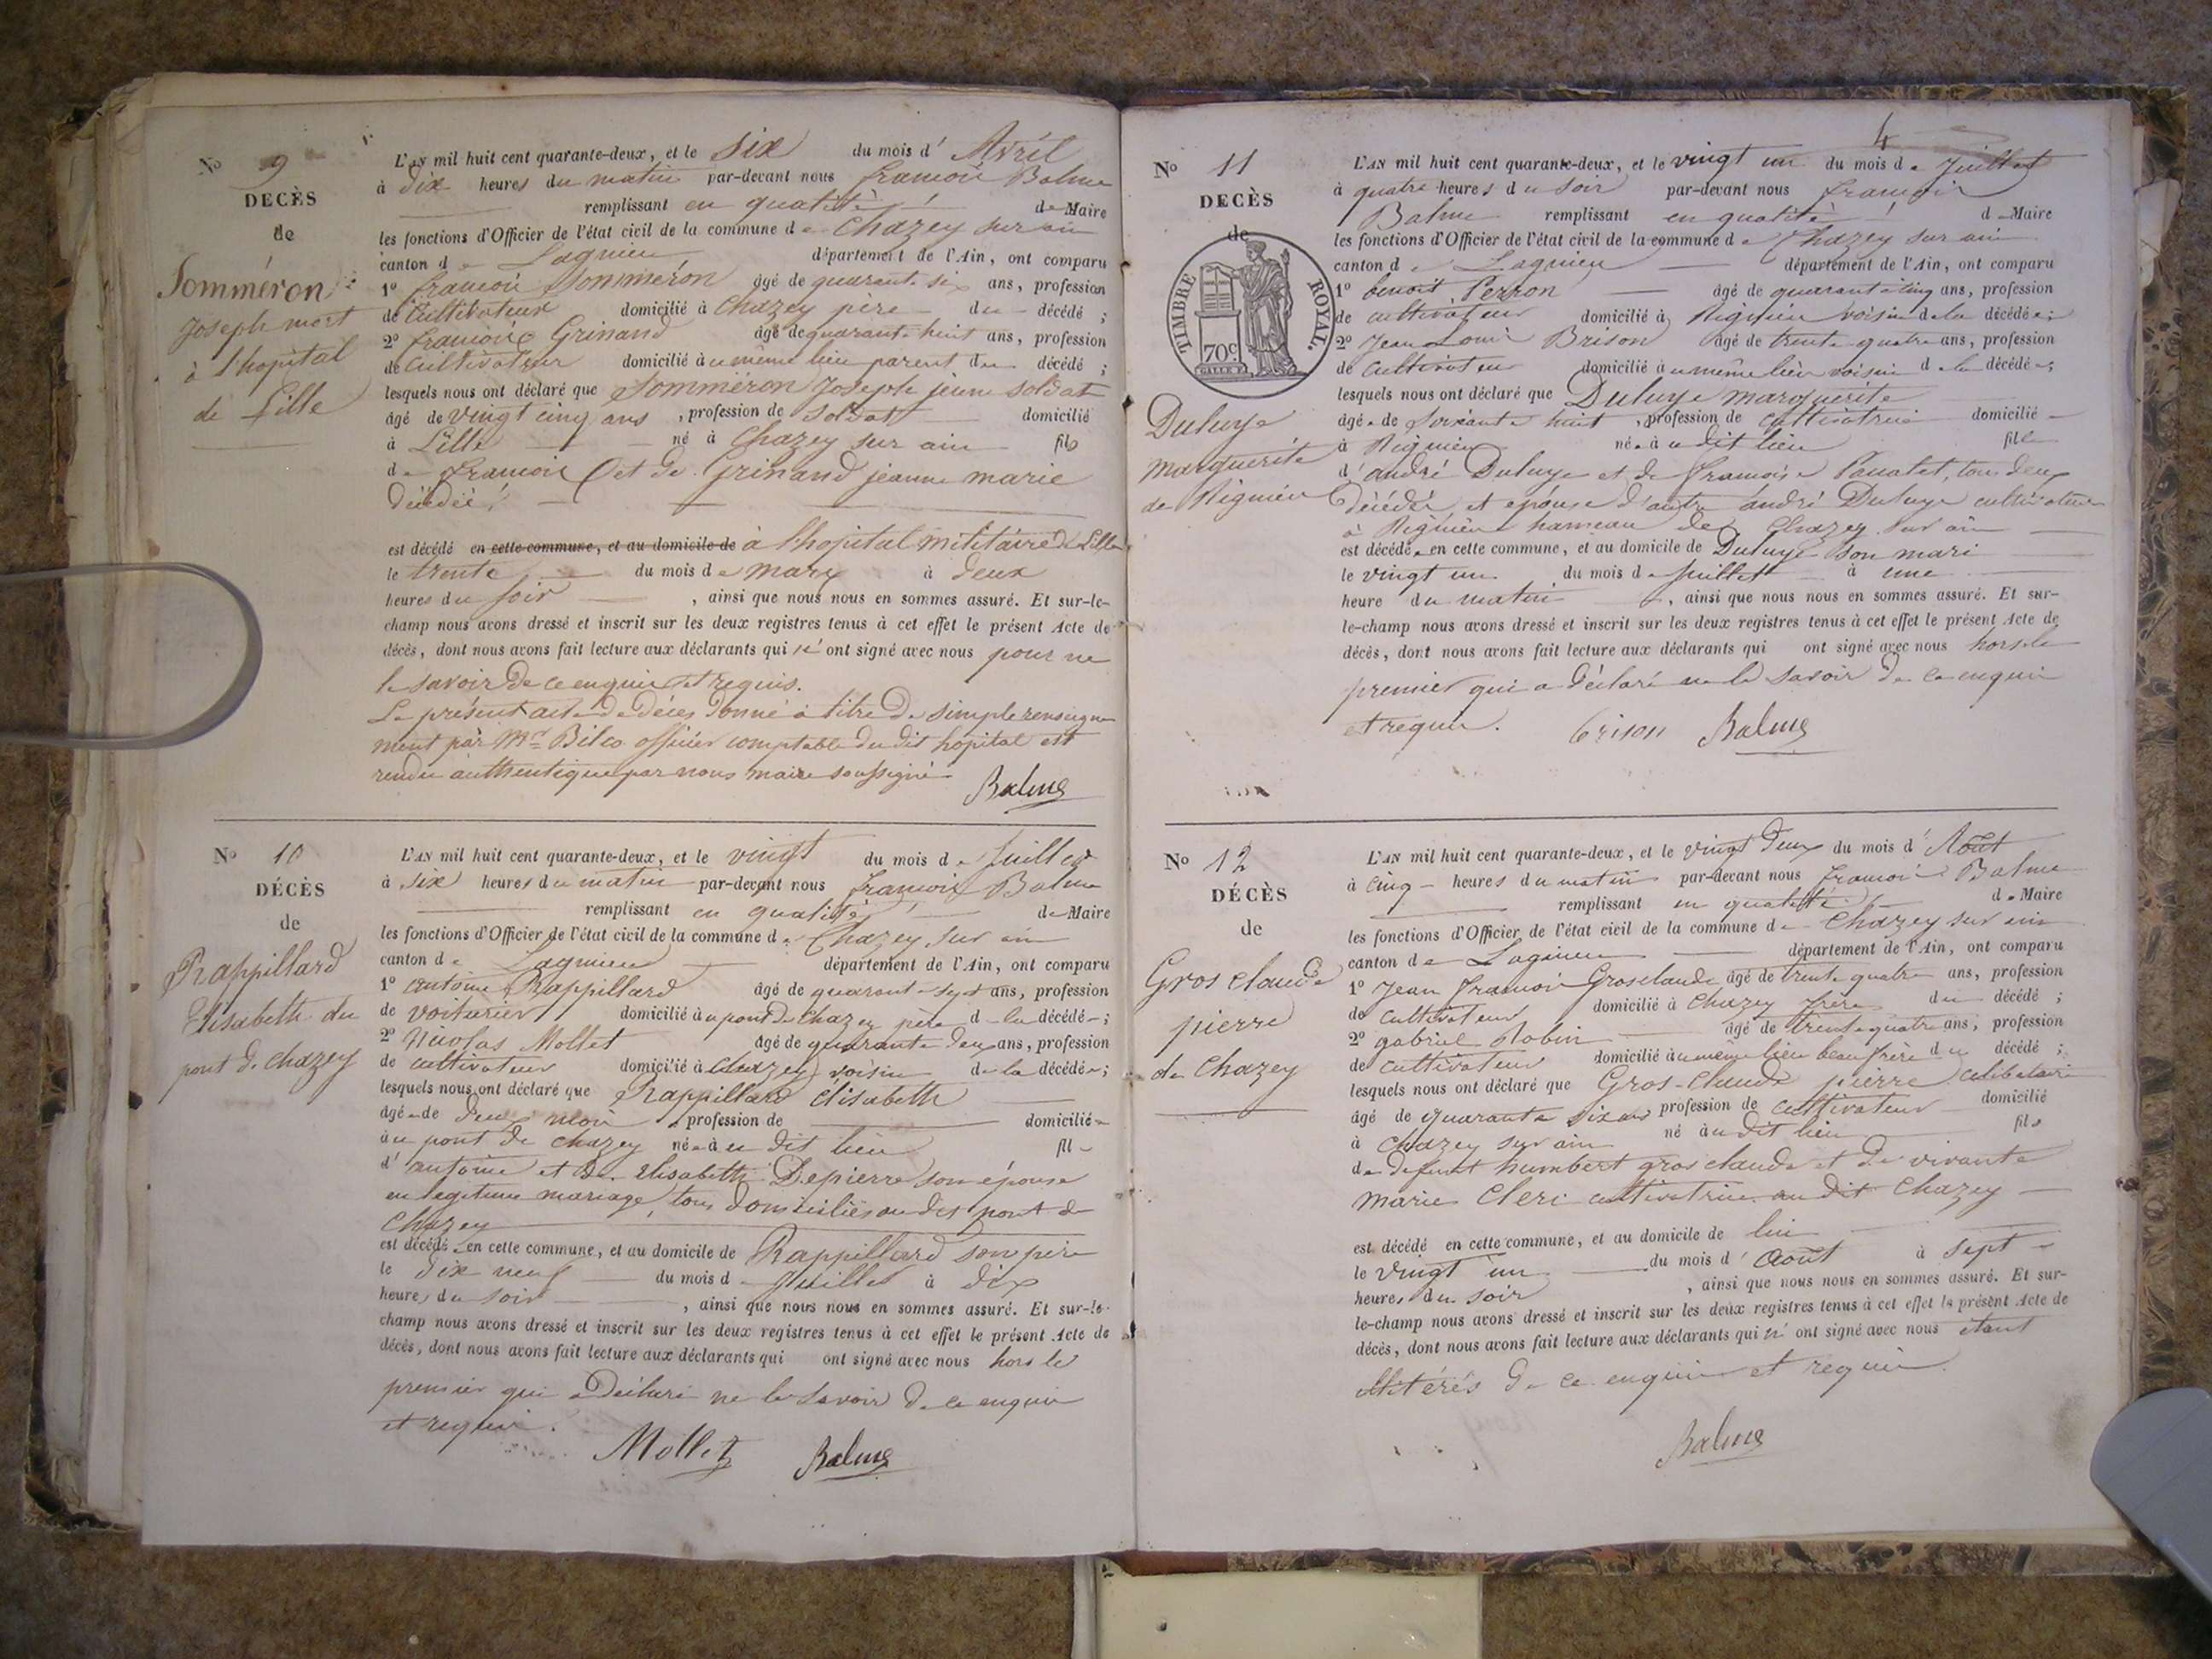 No 9
DECÈS
de
Somméron
Joseph mort
à l'hopital
de Lille
L'AN mil huit cent quarante-deux, et le six du mois d' Avril
à dix heures du matin par-devant nous francois Balme
remplissant en qualité de Maire
les fonctions d'Officier de l'état civil de la commune de Chazey sur ain
canton de Lagnieu département de l'Ain, ont comparu
1° francois Somméron âgé de quarante six ans, profession
de Cultivateur domicilié à Chazey père du décédé ;
2° francois Grinand âgé de quarante huit ans, profession
de cultivateur domicilié au même lieu parent du décédé ;
lesquels nous ont déclaré que Somméron Joseph jeune soldat
âgé de vingt cinq ans, profession de soldat domicilié
à Lille né à Chazey sur ain fils
de francois et de Grinand jeanne marie
décédée
est décédé en cette commune, et au domicile de à l'hopital militaire de Lille
le trente du mois de mars à deux
heures du soir, ainsi que nous nous en sommes assuré. Et sur-le-
champ nous avons dressé et inscrit sur les deux registres tenus à cet effet le présent Acte de
décès, dont nous avons fait lecture aux déclarants qui n' ont signé avec nous pour ne
le savoir de ce enquis et requis.
Le présent acte de décès donné à titre de simple renseigne
ment par Mr Bilco officier comptable du dit hopital est
rendu authentique par nous maire soussigné
Balme
No 10
DÉCÈS
de
Rappillard
Elisabeth du
pont de chazey
L'AN mil huit cent quarante-deux, et le vingt du mois de Juillet
à six heures du matin par-devant nous francois Balme
remplissant en qualité de Maire
les fonctions d'Officier de l'état civil de la commune de Chazey sur ain
canton de Lagnieu département de l'Ain, ont comparu
1° antoine Rappillard âgé de quarante sept ans, profession
de voiturier domicilié au pont de Chazey père de la décédée ;
2° Nicolas Mollet âgé de quarante deux ans, profession
de cultivateur domicilié à Chazey voisin de la décédée ;
lesquels nous ont déclaré que Rappillard élisabeth
âgée de deux mois, profession de domiciliée
au pont de chazey née au dit lieu fille
d' antoine et de Elisabeth Depierre son épouse
en legitime mariage, tous domiciliés au dit pont de
Chazey
est décédée en cette commune, et au domicile de Rappillard son père
le dix neuf du mois de Juillet à dix
heures du soir, ainsi que nous nous en sommes assuré. Et sur-le-
champ nous avons dressé et inscrit sur les deux registres tenus à cet effet le présent Acte de
décès, dont nous avons fait lecture aux déclarants qui ont signé avec nous hors le
premier qui a déclaré ne le savoir de ce enquis
et requis.
Mollet Balme
4
No 11
DECÈS
de
TIMBRE ROYAL.
70c
Duluye
marguerite
de Rignieu
L'AN mil huit cent quarante-deux, et le vingt un du mois de Juillet
à quatre heures du soir par-devant nous francois
Balme remplissant en qualité de Maire
les fonctions d'Officier de l'état civil de la commune de Chazey sur ain
canton de Lagnieu département de l'Ain, ont comparu
1° benoit Perron âgé de quarante cinq ans, profession
de cultivateur domicilié à Rignieu voisin de la décédée ;
2° Jean Louis Brison âgé de trente quatre ans, profession
de Cultivateur domicilié au même lieu voisin de la décédée ;
lesquels nous ont déclaré que Duluye marguerite
âgée de soixante huit, profession de cultivatrice domiciliée
à Rignieu née au dit lieu fille
d'andré Duluye et de francoise tous deux
décédés et epouse d'autre andré Duluye cultivateur
à Rignieu hameau de Chazey sur ain
est décédée en cette commune, et au domicile de Duluye son mari
le vingt un du mois de Juillet à une
heure du matin, ainsi que nous nous en sommes assuré. Et sur-
le-champ nous avons dressé et inscrit sur les deux registres tenus à cet effet le présent Acte de
décès, dont nous avons fait lecture aux déclarants qui ont signé avec nous hors le
premier qui a déclaré ne le savoir de ce enquis
et requis. brison Balme
No 12
DÉCÈS
de
Gros claude
pierre
de Chazey
L'AN mil huit cent quarante-deux, et le vingt deux du mois d' Aout
à cinq heures du matin par-devant nous francois Balme
remplissant en qualité de Maire
les fonctions d'Officier de l'état civil de la commune de Chazey sur ain
canton de Lagnieu département de l'Ain, ont comparu
1° Jean francois Grosclaude âgé de trente quatre ans, profession
de cultivateur domicilié à Chazey frère du décédé ;
2° gabriel Robin âgé de trente quatre ans, profession
de cultivateur domicilié au même lieu beau frère du décédé ;
lesquels nous ont déclaré que Gros-Claude pierre celibataire
âgé de quarante six ans profession de cultivateur domicilié
à Chazey sur ain né au dit lieu fils
de defunt humbert gros claude et de vivante
marie Cleri cultivatrice au dit Chazey
est décédé en cette commune, et au domicile de lui
le vingt un du mois d' Aout à sept
heures du soir, ainsi que nous nous en sommes assuré. Et sur-
le-champ nous avons dressé et inscrit sur les deux registres tenus à cet effet le présent Acte de
décès, dont nous avons fait lecture aux déclarants qui n' ont signé avec nous étant
illitérés de ce enquis et requis.
Balme